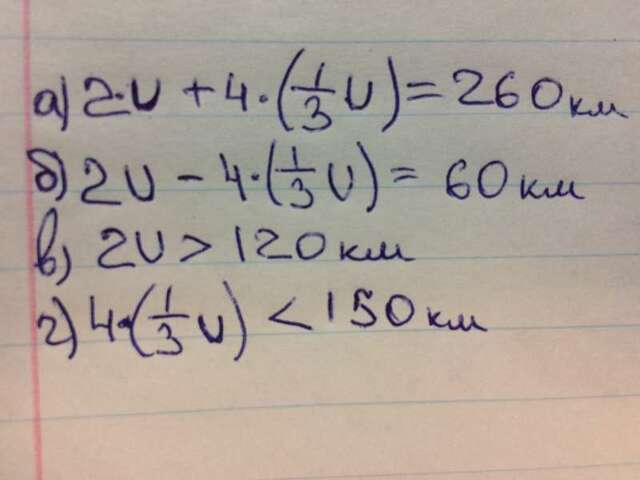 а) 2·υ + 4·(1/3 υ) = 260 км
б) 2υ - 4·(1/3 υ) = 60 км
в) 2υ > 120 км
г) 4·(1/3 υ) < 150 км